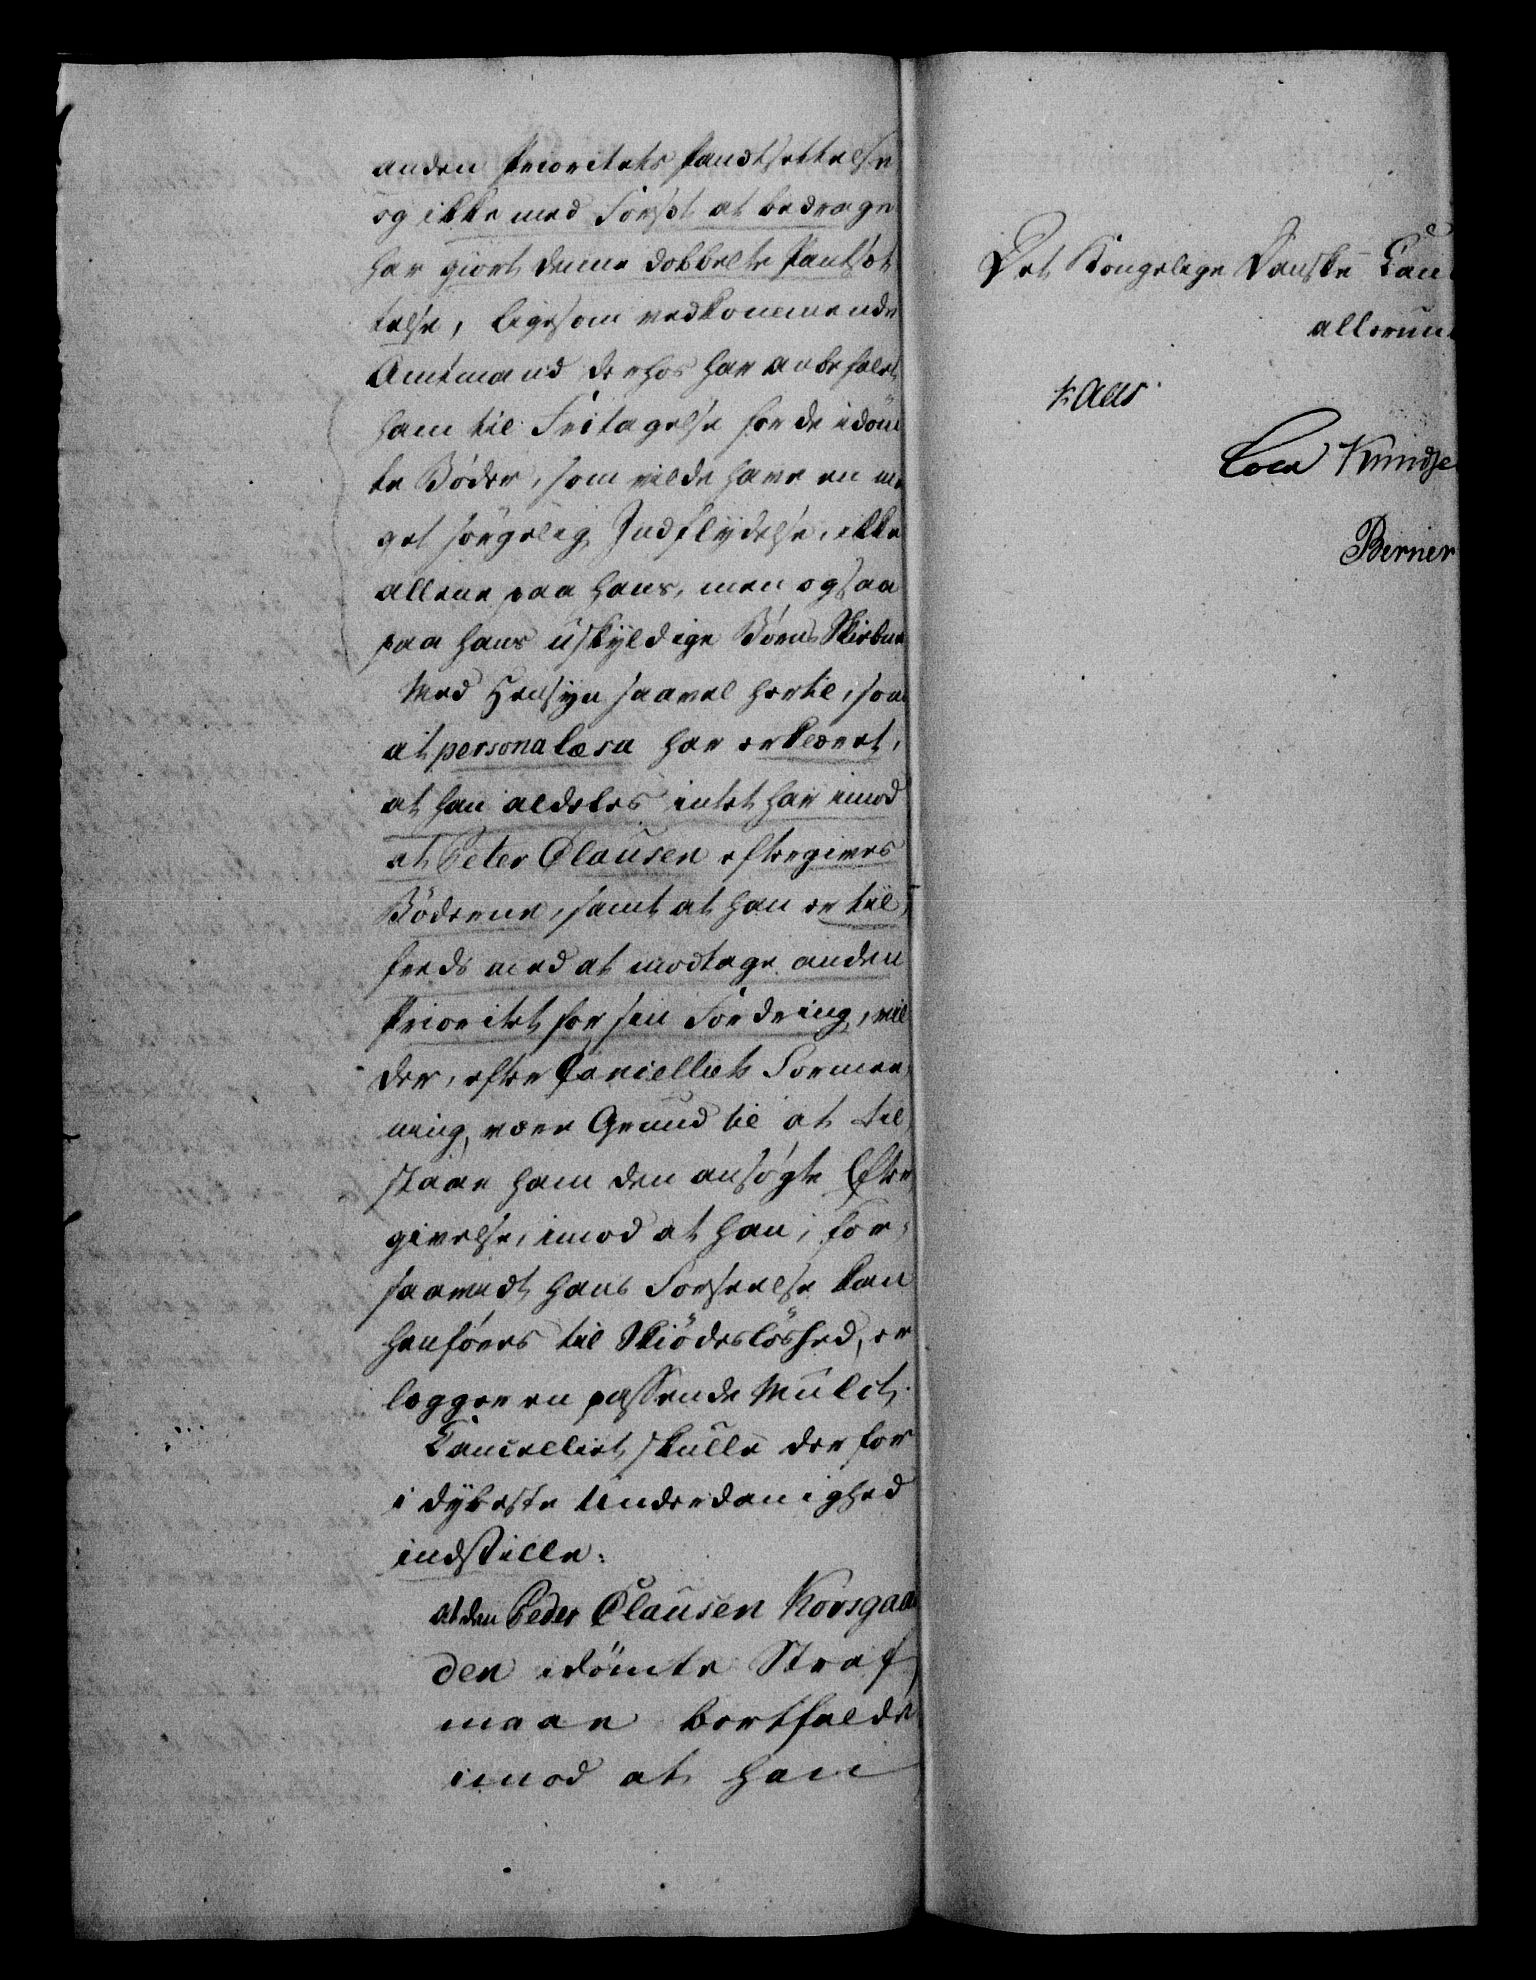 anden Prioritets Pandtsættelse
og ikke med Forsæt at bedrage
har giort denne dobbelte Pantsæt
telse, ligesom vedkommende
Amtmand derhos har anbefalet
ham til Fritagelse for de idöm
te Bøder, som vilde have en me
get sörgelig Indflydelse, ikke
allene paa hans, men ogsaa
paa hans uskyldige Børns Skiebne
Med Hensyn saavel hertil, som
at personalæsa har erklæret,
at han aldeles intet har imod
at Peter Clausen eftergives
Böderne, samt at han er til
freds med at modtage anden
Prioritet for sin Fordring, vil
der, efter Cancelliets Formee
ning, være Grund til at til
staae ham den ansøgte Efter
givelse, imod at han, for,
saavidt hans Forseelse kan
henføres til Skiödeslöshed, er
lægger en passende Mulct.
Cancelliet skulle derfor
i dybeste Underdanighed
indstille:
at den Peder Clausen Korsgaa
den idömte Straf
maae bortfalde
imod at han
Det Kongelige Danske Can
allerun
Kaas
Cold Knudse
Berner